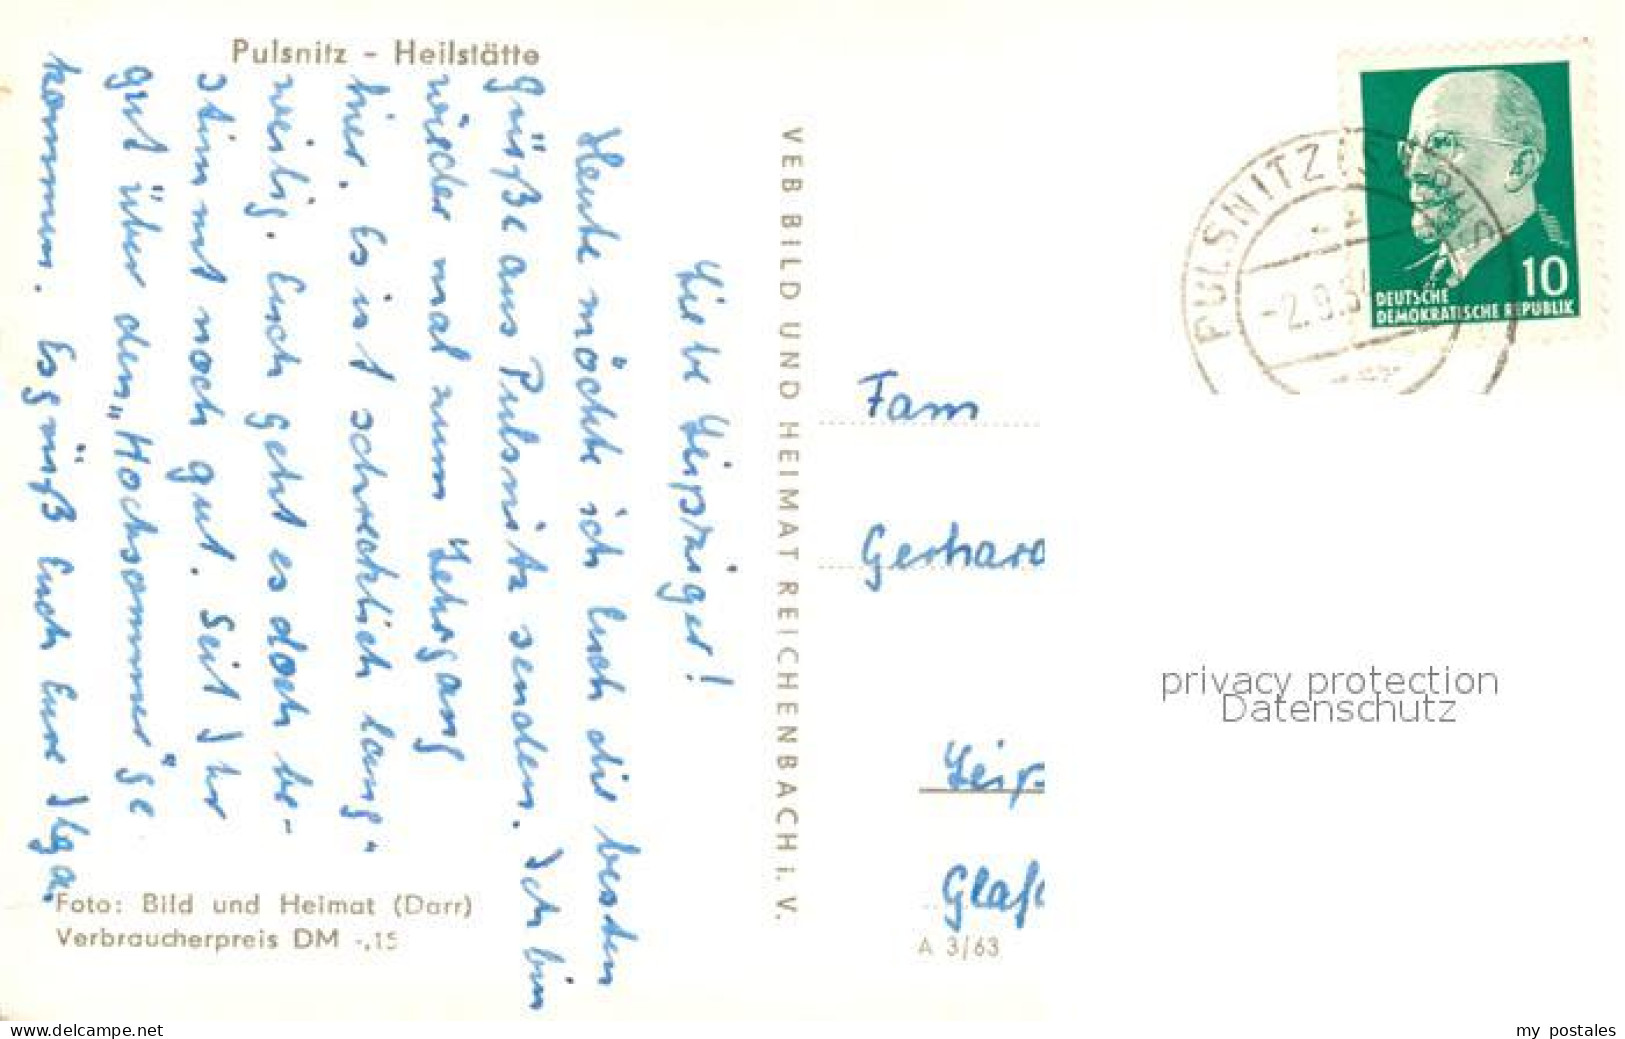 Pulsnitz - Heilstätte
Liebe Leipziger!
Heute möchte ich Euch die besten
Grüße aus Pulsnitz senden. Ich bin
wieder mal zum Lehrgang
hier. Es ist schrecklich lang-
weilig. Euch geht es doch be-
stimmt noch gut. Seit Ihr
gut über den „Hochsommer" ge
kommen. Es grüßt Euch Eure Ilga.
Foto: Bild und Heimat (Darr)
Verbraucherpreis DM -,15
VEB BILD UND HEIMAT REICHENBACH i. V.
PULSNITZ
-2.9.
10
DEUTSCHE
DEMOKRATISCHE REPUBLIK
Fam
Gerhard
Leip
Glaf
A 3/63
privacy protection
Datenschutz
www.delcampe.net
my postales